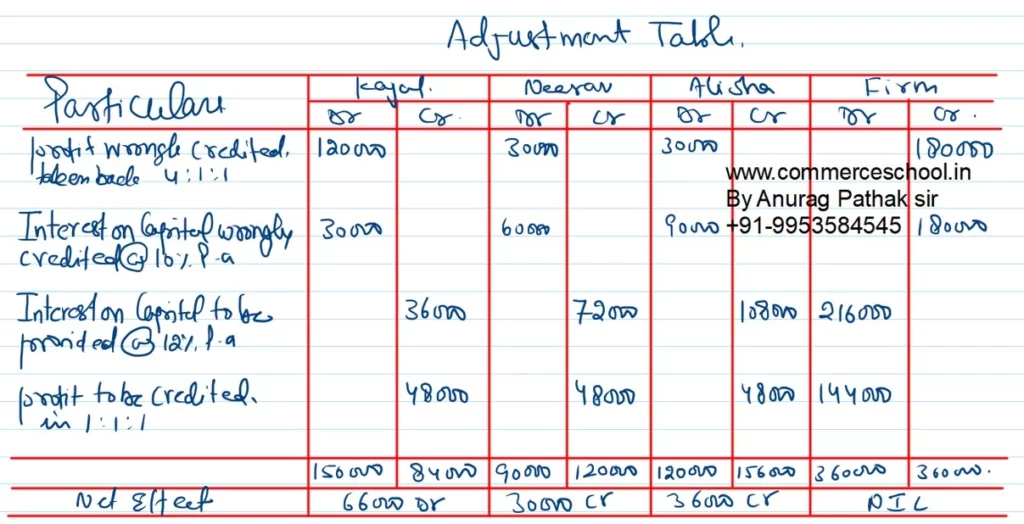 Adjustment Table.
Particulars Kajal. Neerav Alisha Firm
Dr Cr. Dr Cr Dr Cr Dr Cr.
profit wrongly credited. 120000 30000 30000 180000
taken back 4:1:1
www.commerceschool.in
By Anurag Pathak sir
Interest on Capital wrongly 30000 60000 90000 +91-9953584545 180000
credited @ 10% P.a
Interest on Capital to be 36000 72000 108000 216000
provided @ 12% P.a
profit to be credited. 48000 48000 48000 144000
in 1:1:1
150000 84000 90000 120000 120000 156000 360000 360000.
Net Effect 66000 Dr 30000 Cr 36000 Cr NIL